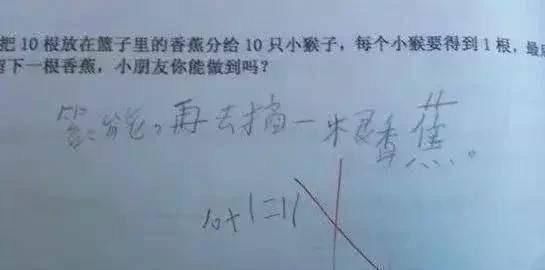 把10根放在篮子里的香蕉分给10只小猴子，每个小猴要得到1根，最
留下一根香蕉，小朋友你能做到吗？
答：能，再去摘一根香蕉。
10+1=11